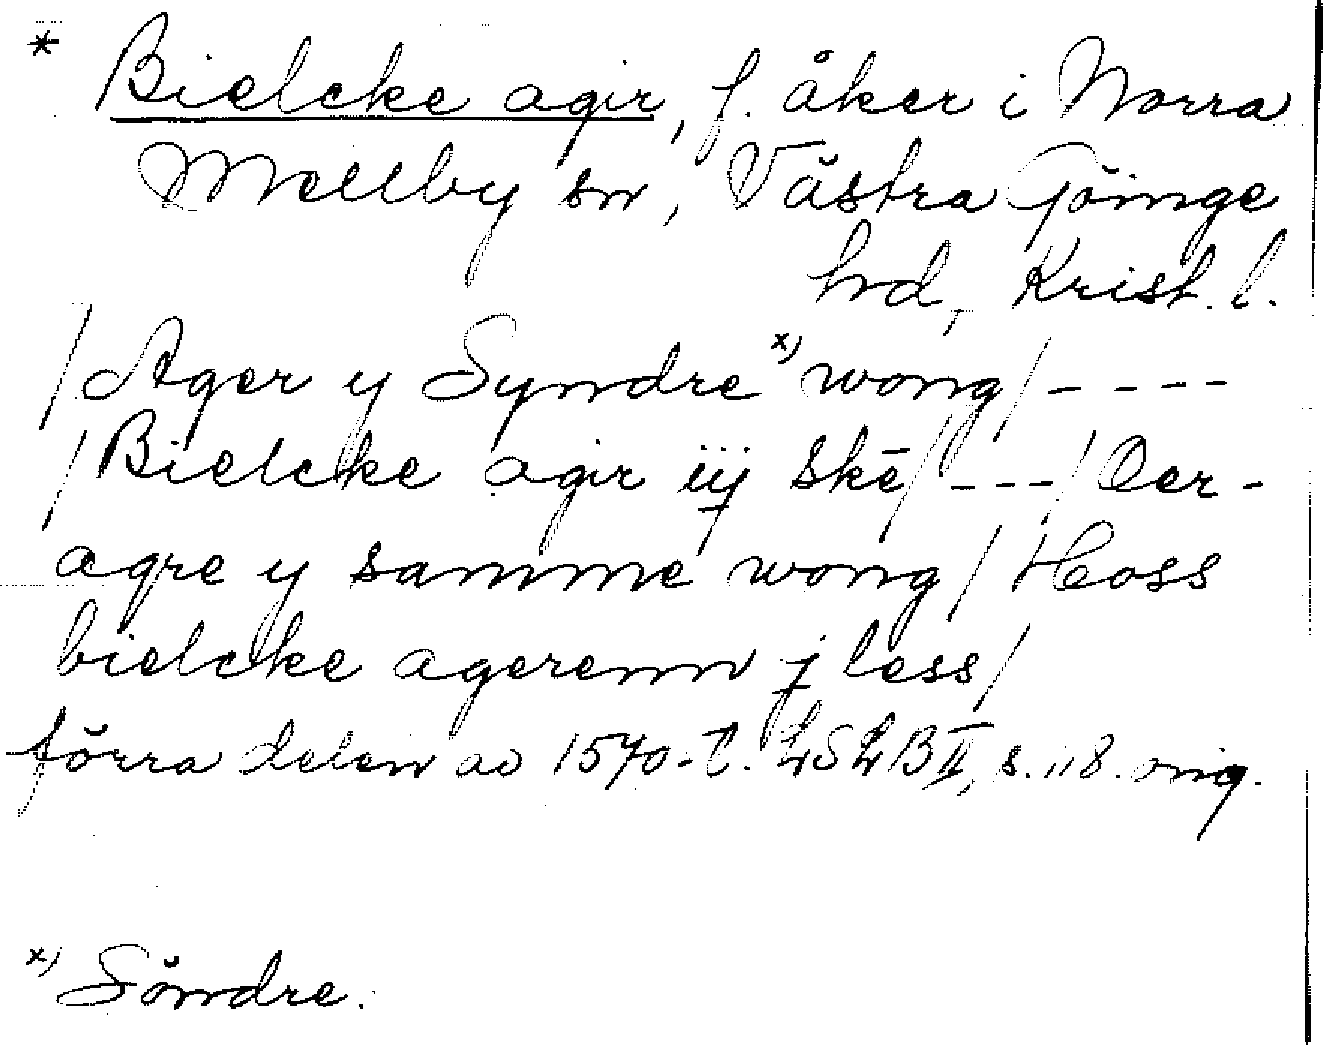 * Bielcke agir, f. åker i Norra
Mellby sn, Västra Göinge
hd, Krist. l.
/Ager y Syndre x) wong/----
/Bielcke agir iij skē/---/Oer-
agre y samme wong/Hoss
bielcke agerenn jless/
förra delen av 1570-t. LSLB II, s. 118. orig.
x) Söndre.